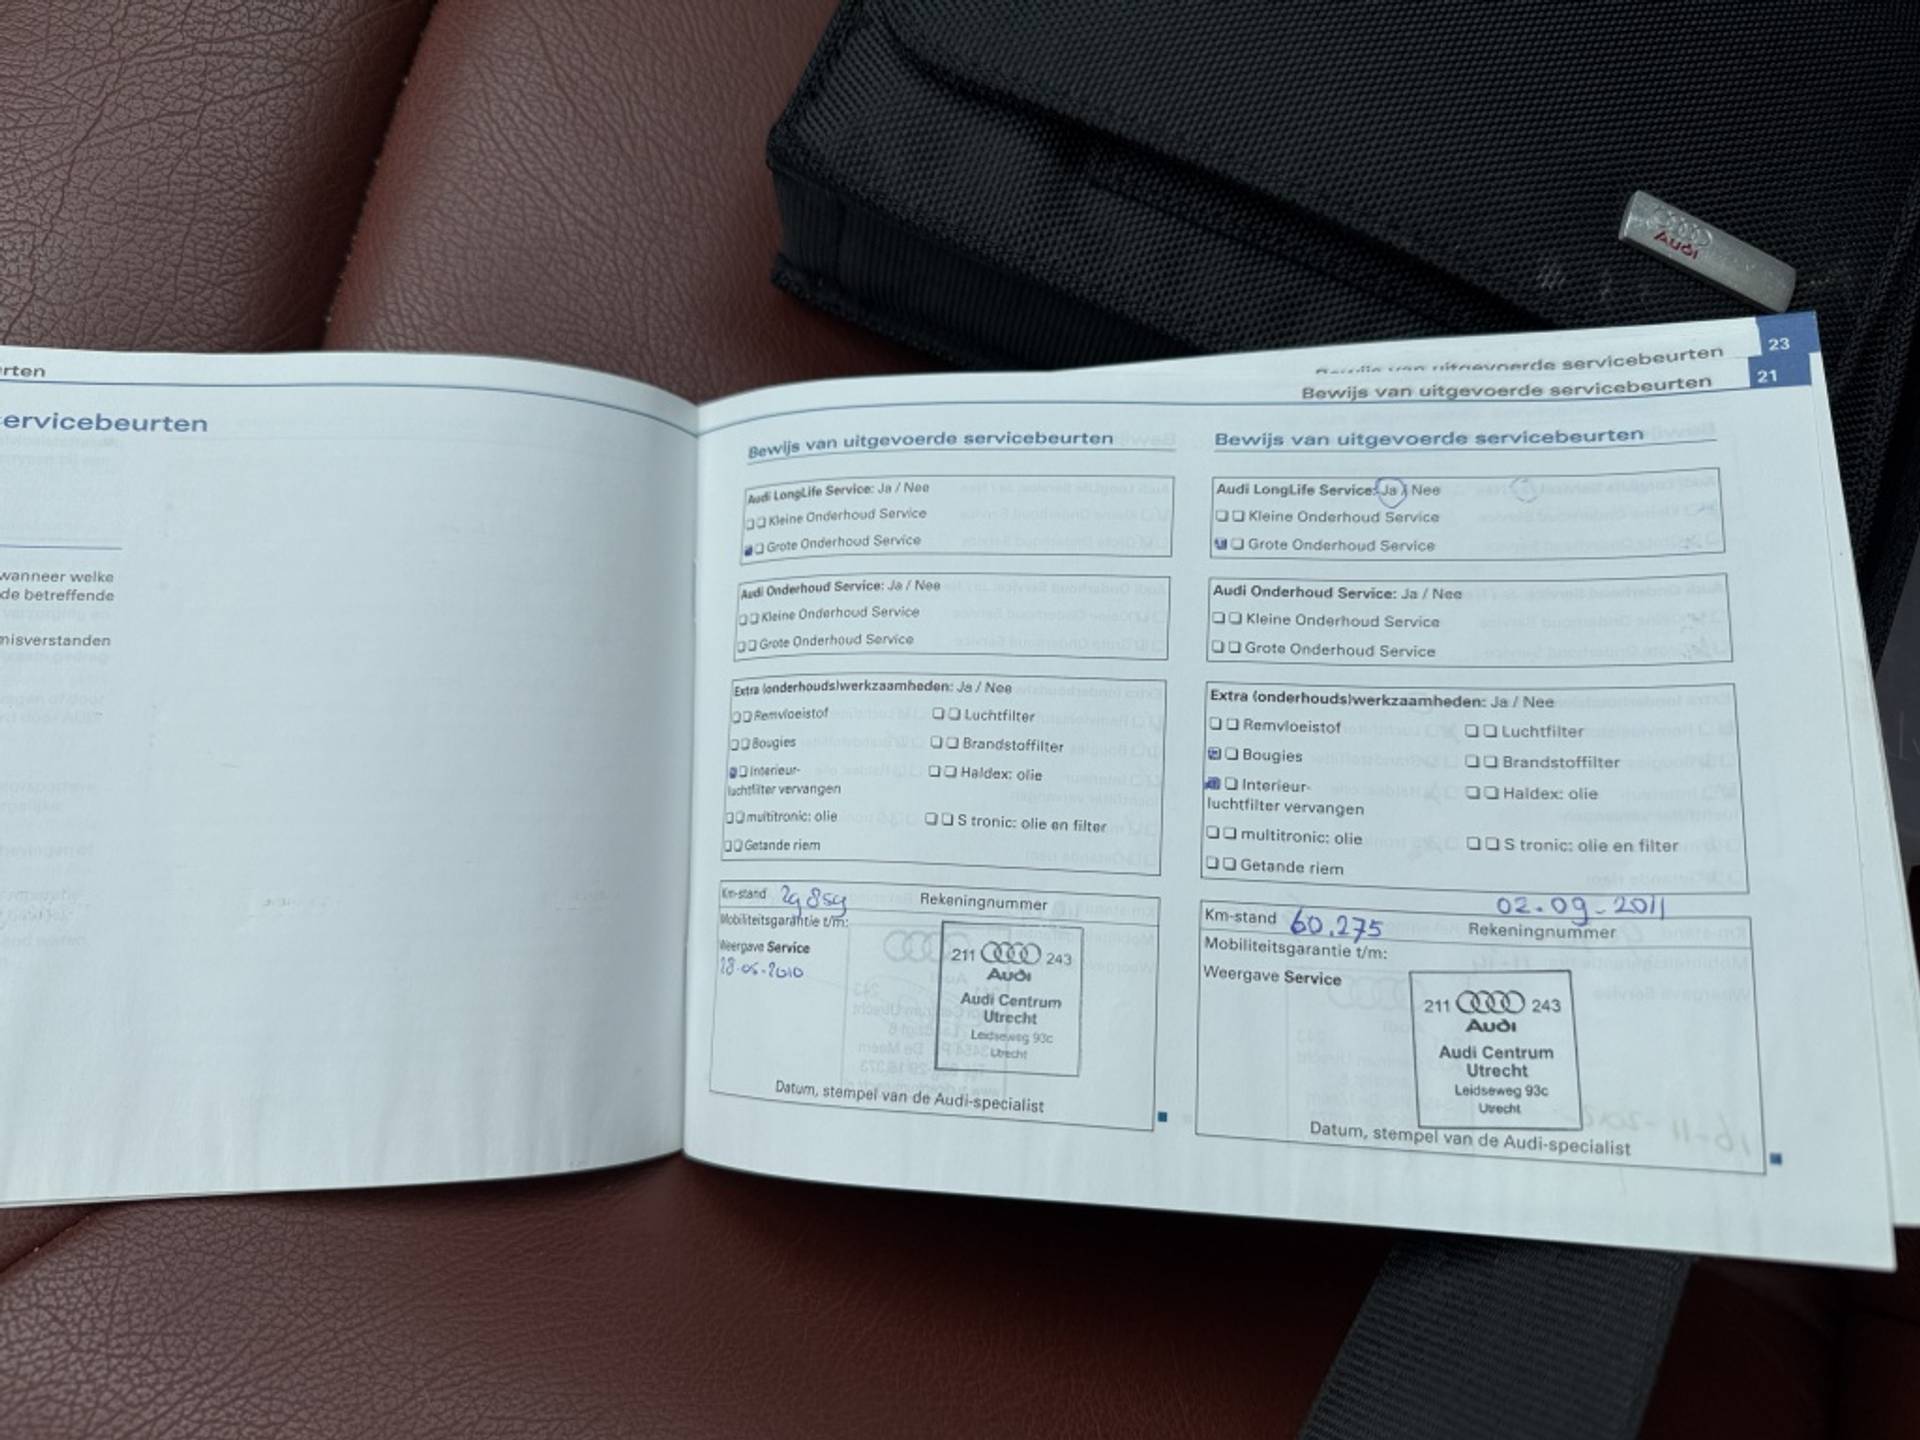 Audi
23
Bewijs van uitgevoerde servicebeurten
21
Bewijs van uitgevoerde servicebeurten
rten
ervicebeurten
wanneer welke
de betreffende
misverstanden
Bewijs van uitgevoerde servicebeurten
Audi LongLife Service: Ja / Nee
Kleine Onderhoud Service
Grote Onderhoud Service
Audi Onderhoud Service: Ja / Nee
Kleine Onderhoud Service
Grote Onderhoud Service
Extra (onderhouds)werkzaamheden: Ja / Nee
Remvloeistof
Luchtfilter
Bougies
Brandstoffilter
Interieur-
luchtfilter vervangen
Haldex: olie
multitronic: olie
S tronic: olie en filter
Getande riem
Km-stand 29859
Rekeningnummer
Mobiliteitsgarantie t/m:
Weergave Service
28-05-2010
211 243
Audi
Audi Centrum
Utrecht
Leidseweg 93c
Utrecht
Datum, stempel van de Audi-specialist
Bewijs van uitgevoerde servicebeurten
Audi LongLife Service: Ja / Nee
Kleine Onderhoud Service
Grote Onderhoud Service
Audi Onderhoud Service: Ja / Nee
Kleine Onderhoud Service
Grote Onderhoud Service
Extra (onderhouds)werkzaamheden: Ja / Nee
Remvloeistof
Luchtfilter
Bougies
Brandstoffilter
Interieur-
luchtfilter vervangen
Haldex: olie
multitronic: olie
S tronic: olie en filter
Getande riem
02.09-2011
Km-stand 60.275
Rekeningnummer
Mobiliteitsgarantie t/m:
Weergave Service
211 243
Audi
Audi Centrum
Utrecht
Leidseweg 93c
Utrecht
Datum, stempel van de Audi-specialist